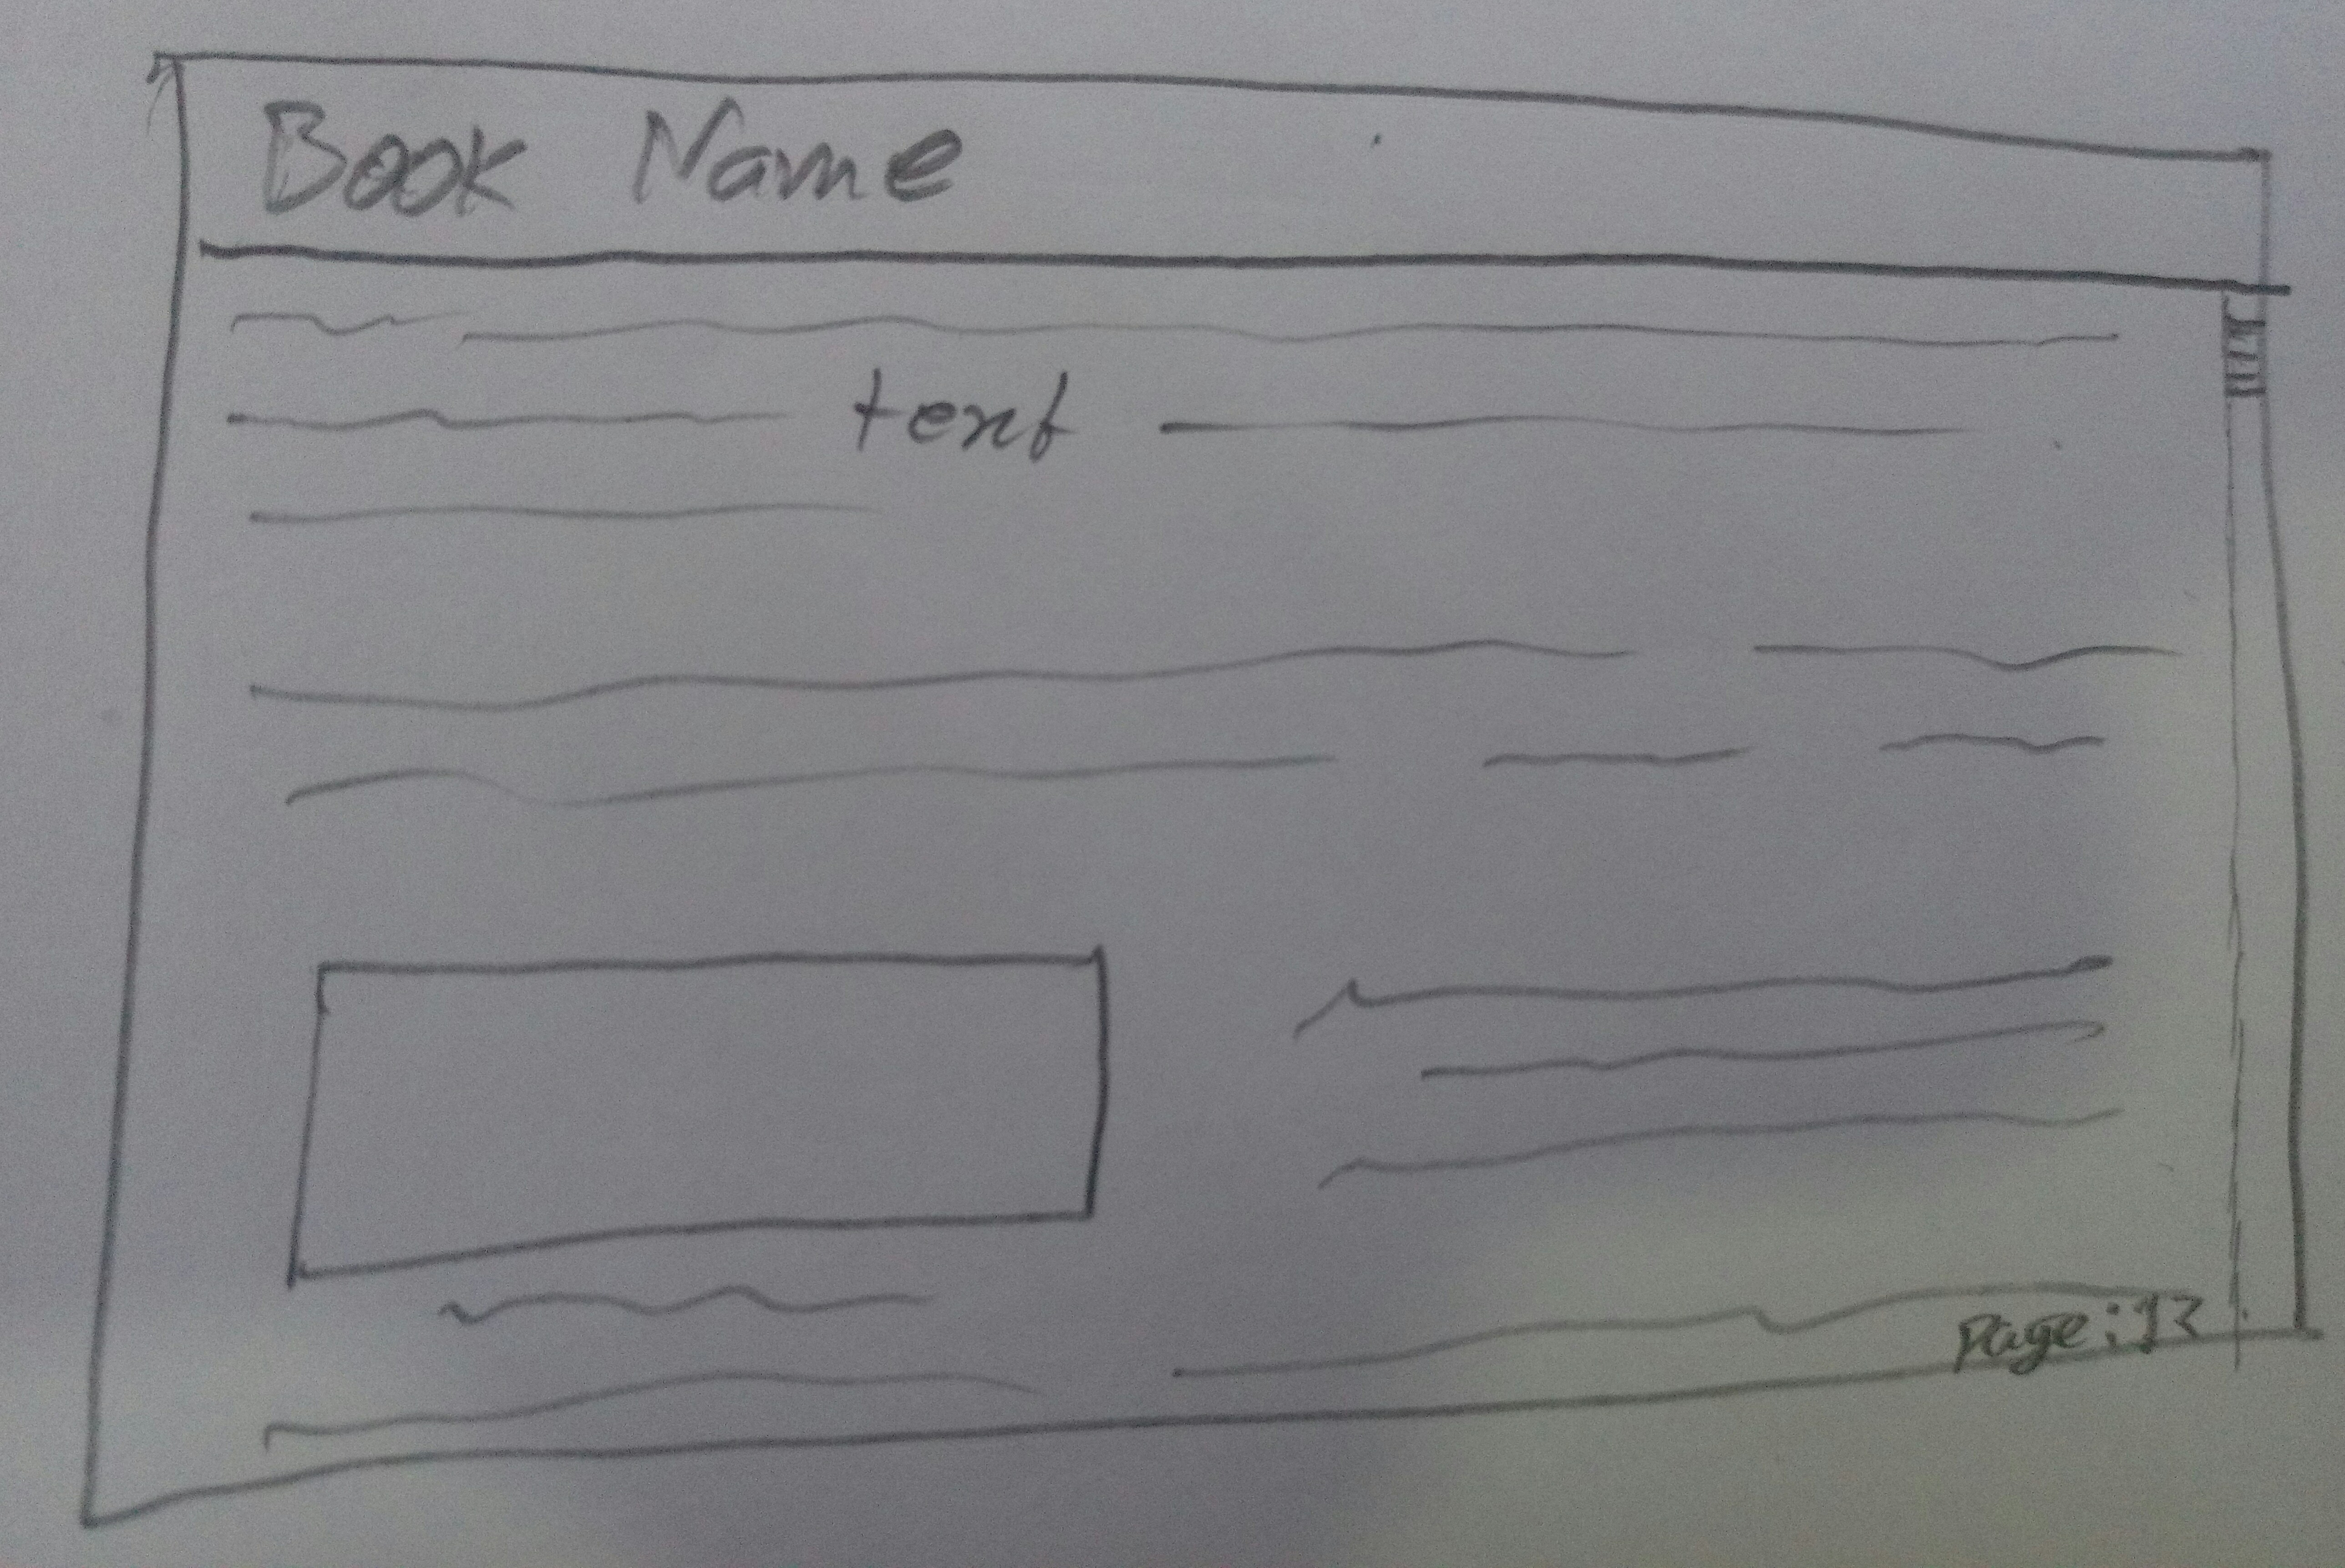 Book Name
text
Page: 13